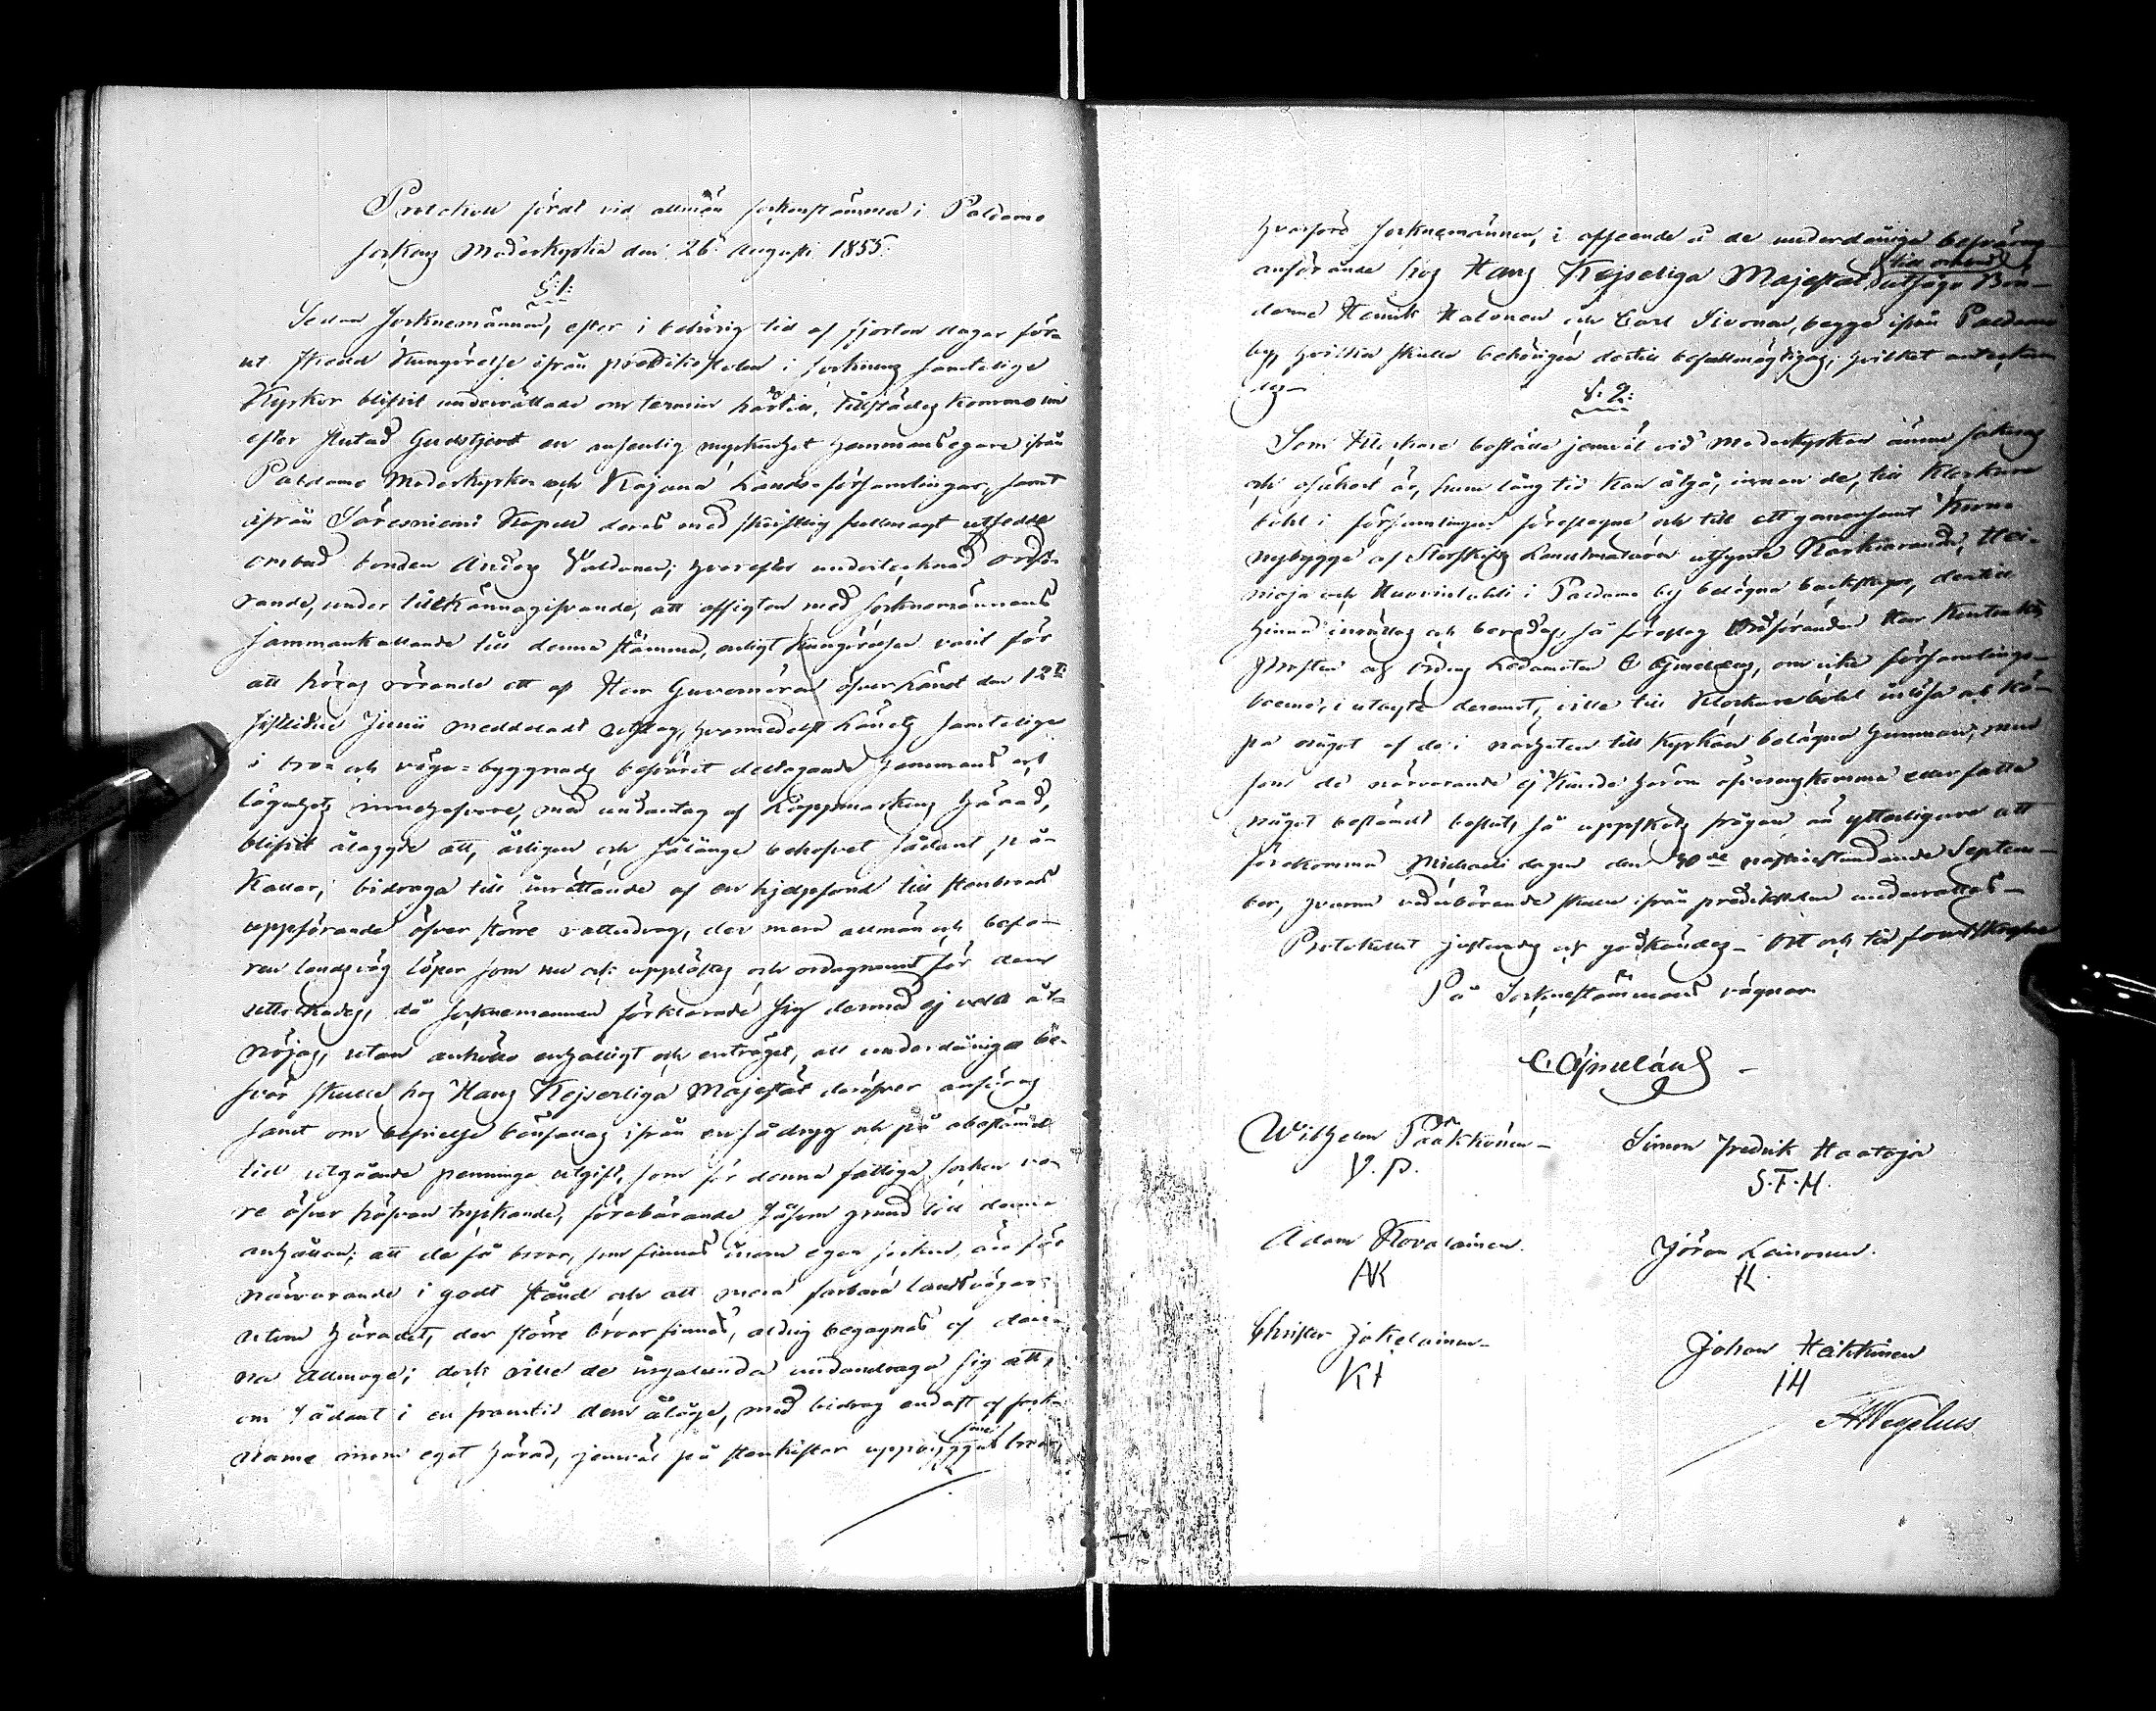 Protokoll fördt vid allmän sockenstämma i Paldamo
sockens Moderkyrka den 26 Augusti 1855.
§:1:
Sedan Socknemännen, efter i behörig tid af fjorton dagar för-
ut skedd Kungörelse ifrån predikostolen i socknens samtelige
Kyrkor blifvit underrättade om termin härtill, tillstädes kommo nu
efter slutad Gudstjenst en ansenlig myckenhet hemmansegare ifrån
Paldamo Moderkyrko och Kajana Lands-församlingar, samt
ifrån Säresniemi Kapell deras med skriftlig fullmagt utsedde
ombud bonden Anders Väldonen; hvarefter undertecknad Ordfö-
rande, under tillkännagifvande, att afsigten med socknemännens
sammankallande till denna stämma, enligt Kungörelsen varit för
att höras rörande ett af Herr Guvernören öfver Länet den 12te
sistlidne Junii meddeladt utslag, hvarmedelst Länets samtelige
i bro- och vägabyggnads besväret deltagande hemmans och
lägenhets innehafvare, med undantag af Lappmarkens härad,
blifvit ålagde att, årligen och sålänge behofvet sådant på-
kallar, bidraga till inrättande af en hjelpfond till stenbroars
uppförande öfver större vattudrag, der mera allmän och befa-
ren landsväg löper som nu och upplästes och ordagrannt för dem
uttolkades, då socknemännen förklarade sig dermed ej vela åt-
nöjas, utan anhöllo enhälligt och enträget, att underdåniga be-
svär skulle hos Hans Kejserliga Majestät deröfver anföras
samt om befrielse bönfallas ifrån en så dryg och på obestämd
tid utgående penninge utgift, som för denna fattiga socken vo-
re öfver höfvan tryckande, förebärande såsom grund till denna
anhållan; att de få broar, som finnas inom egen socken, äro för
närvarande i godt stånd och att mera farbara landsvägar
utom häradet, der större broar finnas, aldrig begagnas af den-
na Allmoge; dock ville de ingalunda undandraga sig att,
om sådant i en framtid dem ålåge, med bidrag endast af sock-
narne inom eget härad, jemväl på stenkistor uppbygga sine broar,
hvarförd Socknemännen, i afseende å de underdåniga besvärens
anförande hos Hans Kejserliga Majestät till ombud utsågo Bön-
derne Henrik Halonen och Carl Sivonen, begge ifrån Paldamo
by, hvilka skulle behörigen dertill befullmägtigas; hvilket anteckna-
des.
§:2:
Som Klockare boställe jemväl vid Moderkyrkan ännu saknas
och osäkert är, huru lång tid kan åtgå, innan de, till Klockare
bohl i församlingen föreslagne och till ett gemensamt Krono
nybygge af Storskiftes Landtmätaren utsynte Karkuranda, Hei-
nioja och Huovinlahti i Paldamo by belägna backstugor, dertill
hinna inrättas och beredas, så föreslog Ordföranden Herr Kontrakts
Prosten och Ordens Ledamoten C Ajmelæus, om icke församlings-
boerne, i utbyte deremot, ville till Klockarebohl inlösa och kö-
pa något af de i närheten till Kyrkan belägna hemman; men
som de närvarande ej kunde härom öfverenskomma eller fatta
något bestämdt beslut, så uppsköts frågan än ytterligare att
förekomma Michaeli dagen den 30de nästinstundande Septem-
ber, hvarom vederbörande skulle ifrån predikstolen underrättas.
Protokollet justerades och godkändes. Ort och tid som förskrifne
På Sockenstämmans vägnar
C Ajmelæus
Wilhelm Pääkkönen
V. P.
Simon Fredrik Haataja
S.F.H.
Adam Kovalainen.
AK
Jöran Leinonen.
Christer Jokelainen
Johan Heikkinen
IH
A Wegelius